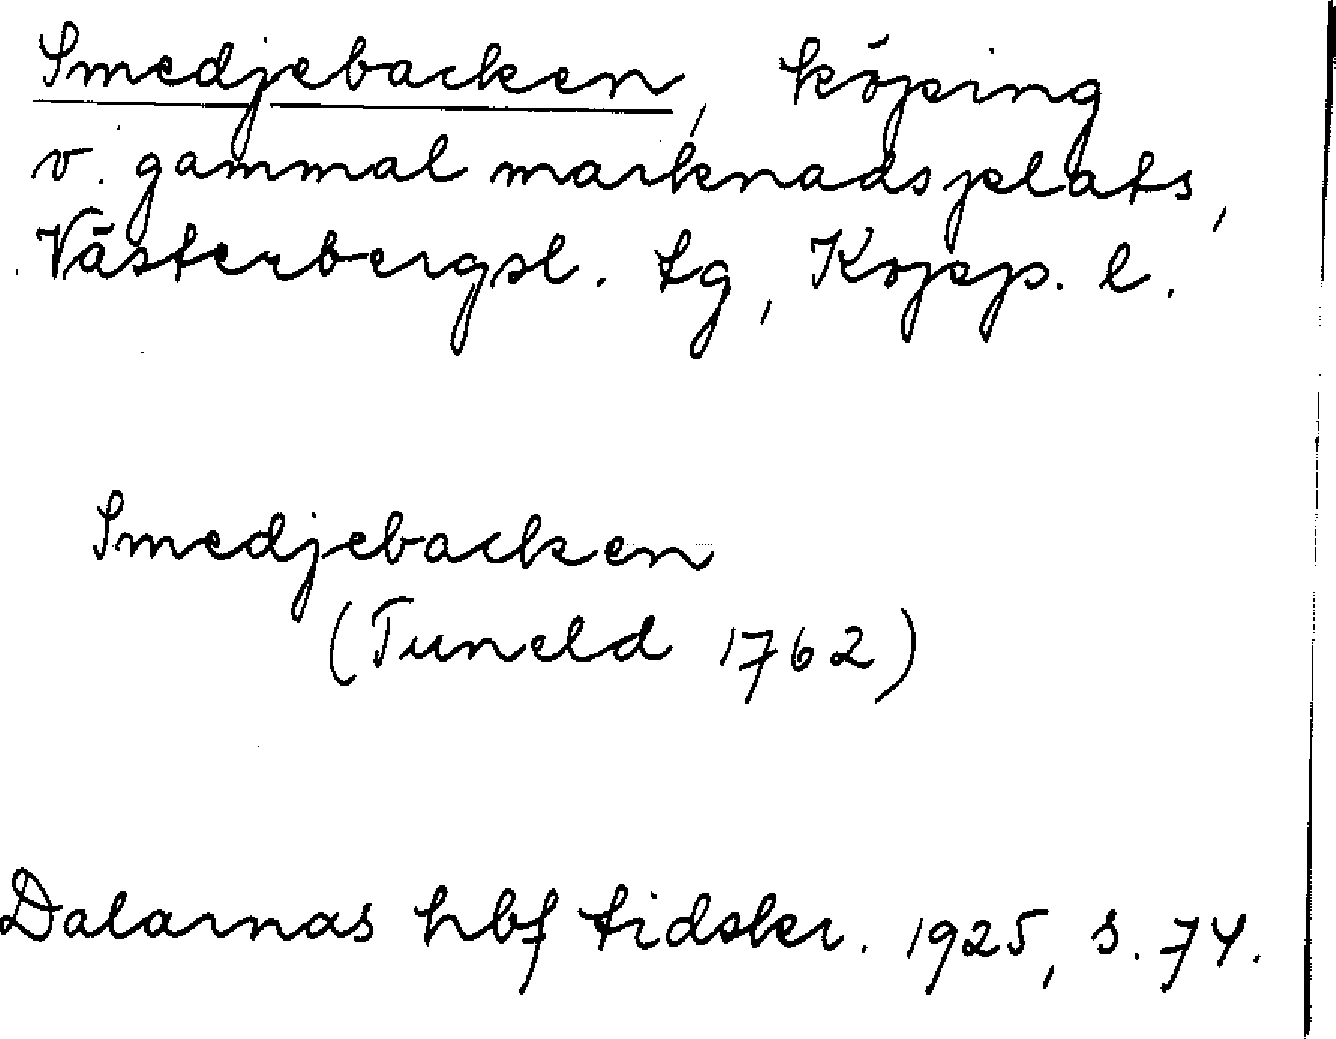 Smedjebacken, köping
v. gammal marknadsplats,
Västerbergsl. tg, Kopp. l.
Smedjebacken
(Tuneld 1762)
Dalarnas hbf tidskr. 1925, s. 74.